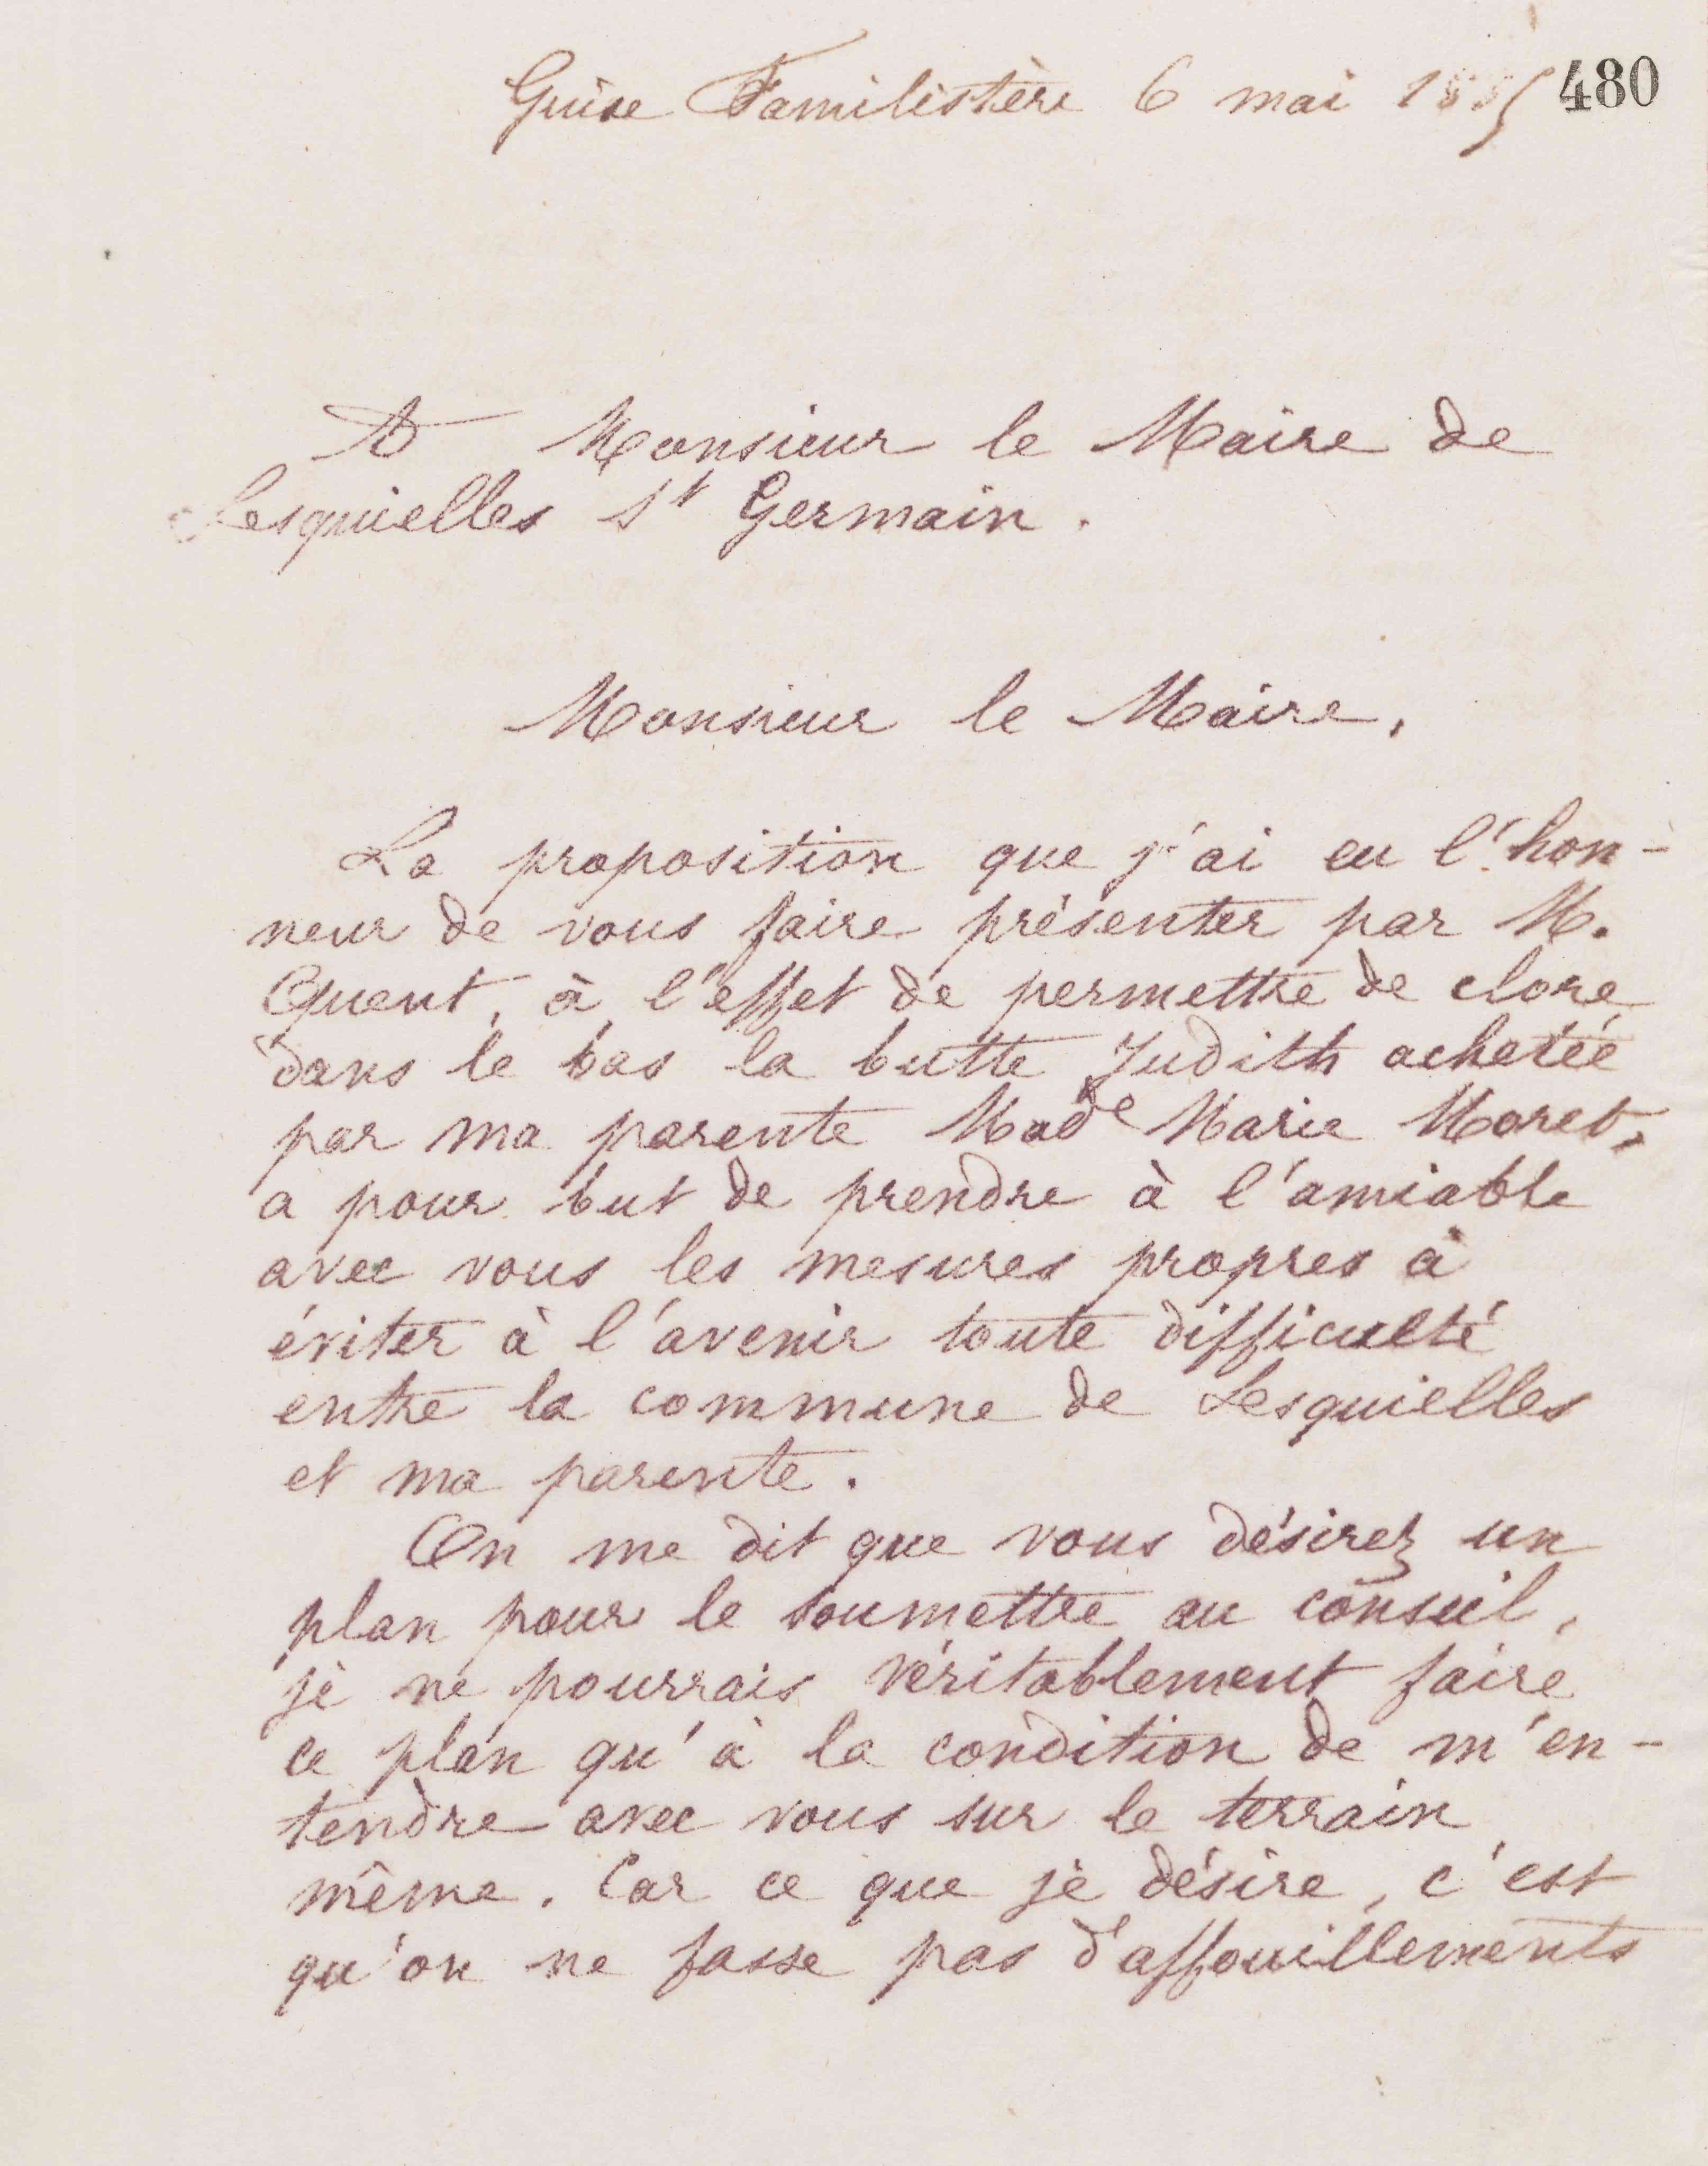 Guise Familistère 6 mai 1885 480
A Monsieur le Maire de
Lesquielles St Germain.
Monsieur le Maire,
La proposition que j'ai eu l'hon-
neur de vous faire présenter par M.
Quent, à l'effet de permettre de clore
dans le bas la butte Judith achetée
par ma parente Made Marie Moret,
a pour but de prendre à l'amiable
avec vous les mesures propres à
éviter à l'avenir toute difficulté
entre la commune de Lesquielles
et ma parente.
On me dit que vous désirez un
plan pour le soumettre au conseil,
je ne pourrais véritablement faire
ce plan qu'à la condition de m'en-
tendre avec vous sur le terrain
même. Car ce que je désire, c'est
qu'on ne fasse pas d'affouillements